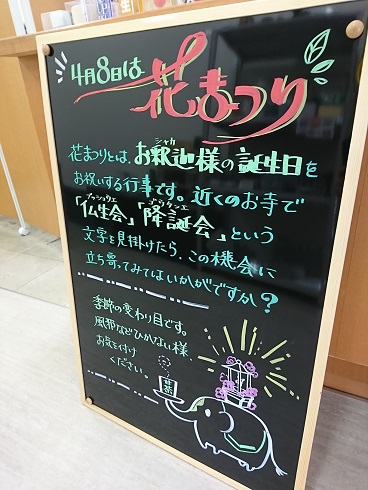 4月8日は
花まつり
花まつりとは、お釈迦様の誕生日を
シャカ
お祝いする行事です。近くのお寺で
ブッショウエ ゴウタンエ
「仏生会」「降誕会」という
文字を見掛けたら、この機会に
立ち寄ってみてはいかがですか?
季節の変わり目です。
風邪などひかない様、
お気を付け
ください。
甘茶